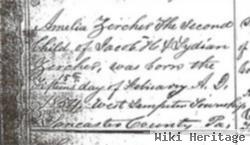 Amelia Zercher The Second
Child of Jacob H & Lydian
Zercher, was born the
15th
day of February A. D.
West Lampeter Township
Lancaster County Pa.
Wiki Heritage